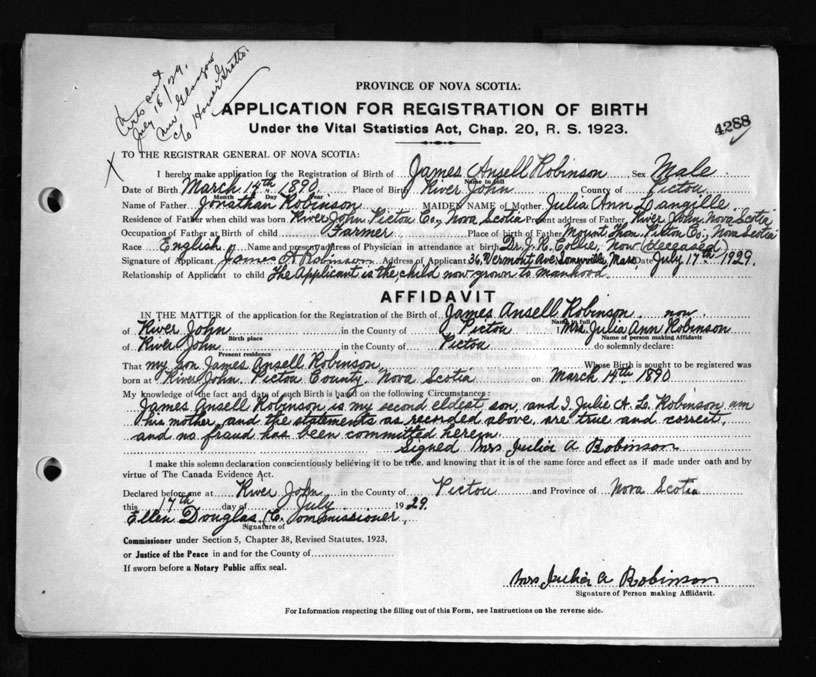 July 18/29.
New Glasgow
c/o Homer Gratto.
PROVINCE OF NOVA SCOTIA.
APPLICATION FOR REGISTRATION OF BIRTH
Under the Vital Statistics Act, Chap. 20, R. S. 1923.
4288
TO THE REGISTRAR GENERAL OF NOVA SCOTIA:
I hereby make application for the Registration of Birth of James Ansell Robinson Sex Male
Name in full
Date of Birth March 14th 1890 Place of Birth River John County of Pictou
Month Day Year
Name of Father Jonathan Robinson MAIDEN NAME of Mother Julia Ann Langille
Residence of Father when child was born River John Pictou Co., Nova Scotia Present address of Father River John, Nova Scotia
Occupation of Father at Birth of child Farmer Place of birth of Father Mount Thom, Pictou Co., Nova Scotia
Race English Name and present address of Physician in attendance at birth Dr. J. K. Collie, Now (deceased)
Signature of Applicant James A Robinson Address of Applicant 36, Vermont Ave, Somerville, Mass Date July 17th 1929.
Relationship of Applicant to child The Applicant is the child now grown to manhood.
AFFIDAVIT
IN THE MATTER of the application for the Registration of the Birth of James Ansell Robinson now
Name in full
of River John in the County of Pictou I Mrs Julia Ann Robinson
Birth place Name of person making Affidavit
of River John in the County of Pictou do solemnly declare:
Present residence
That my son James Ansell Robinson Whose Birth is sought to be registered was
born at River John, Pictou County, Nova Scotia on March 14th 1890
My knowledge of the fact and date of such Birth is based on the following Circumstances:
James Ansell Robinson is my second eldest son, and I Julie A. L. Robinson am
his mother, and the statements as recorded above are true and correct,
and no fraud has been committed herein.
Signed Mrs Julia A Robinson
I make this solemn declaration conscientiously believing it to be true, and knowing that it is of the same force and effect as if made under oath and by
virtue of The Canada Evidence Act.
Declared before me at River John in the County of Pictou and Province of Nova Scotia
this 17th day of July 1929.
Ellen Douglas, Commissioner,
Signature of
Commissioner under Section 5, Chapter 38, Revised Statutes, 1923,
or Justice of the Peace in and for the County of
If sworn before a Notary Public affix seal.
Mrs Julia A Robinson
Signature of Person making Affidavit.
For Information respecting the filling out of this Form, see Instructions on the reverse side.